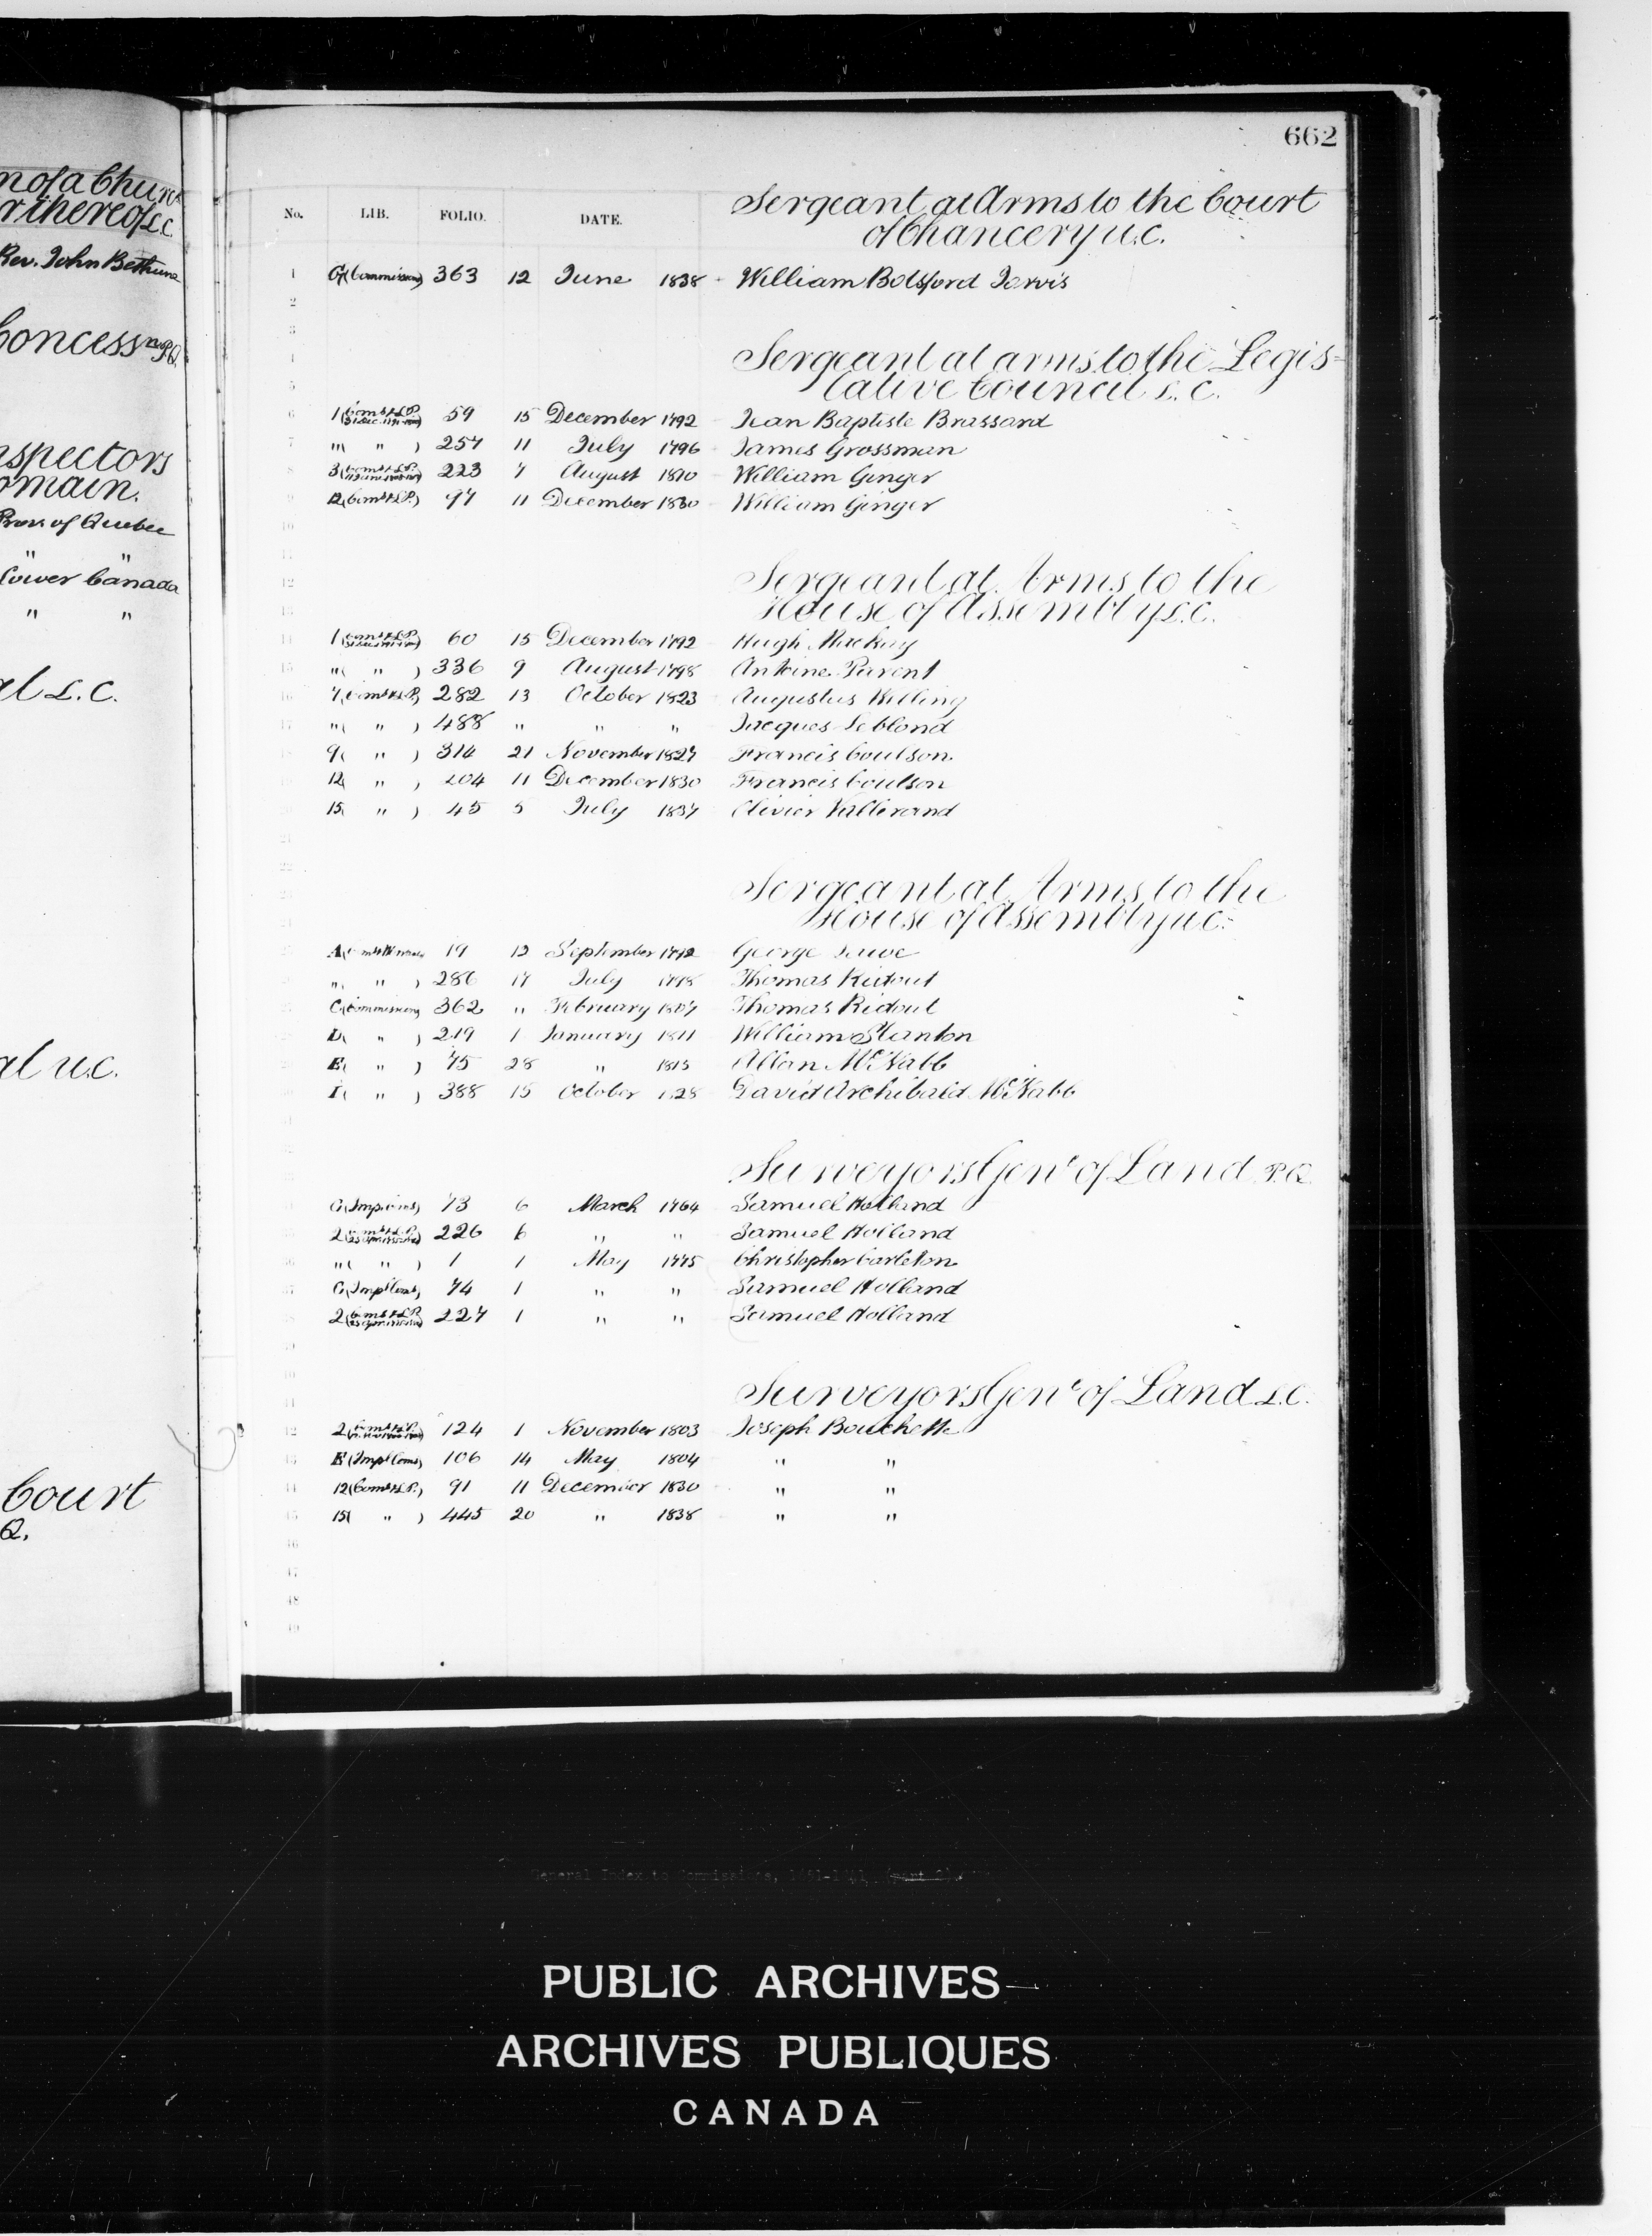 662
No. LIB. FOLIO. DATE.
Sergeant at Arms to the Court
of Chancery u.c.
1 G(Commissions) 363 12 June 1838 William Botsford Jarvis
2
3
4 Sergeant at arms to the Legis=
5 lative Council L.C.
6 1 59 15 December 1792 Jean Baptiste Brassard
7 "( " ) 257 11 July 1796 James Grossman
8 3 223 7 August 1810 William Ginger
9 12(Comns & L.P.) 97 11 December 1830 William Ginger
10
11
12 Sergeant at Arms to the
13 House of Assembly L.C.
14 1 60 15 December 1792 Hugh Mackay
15 "( " ) 336 9 August 1798 Antoine Parent
16 7(Comns & L.P.) 282 13 October 1823 Augustus Welling
17 "( " ) 488 " " " Jacques Leblond
18 9( " ) 314 21 November 1827 Francis Coulson
19 12( " ) 204 11 December 1830 Francis Coulson
20 15( " ) 45 5 July 1837 Olivier Vallerand
21
22
23 Sergeant at Arms to the
24 House of Assembly u.c.
A 19 12 September 1792 George
"( " ) 286 17 July 1798 Thomas Ridout
C(Commissions) 362 " February 1807 Thomas Ridout
D( " ) 219 1 January 1811 William Stanton
E( " ) 75 28 " 1813 Allan McNabb
I( " ) 388 15 October 1828 David Archibald McNabb
Surveyors Genl of Land P.Q.
G(Impl Coms) 73 6 March 1764 Samuel Holland
2 226 6 " " Samuel Holland
36 "( " ) 1 1 May 1775 Christopher Carleton
37 G(Impl Coms) 74 1 " " Samuel Holland
38 2 227 1 " " Samuel Holland
39
40
41 Surveyors Genl of Land L.C.
42 2 124 1 November 1803 Joseph Bouchette
43 E(Impl Coms) 106 14 May 1804 " "
44 12(Comns & L.P.) 91 11 December 1830 " "
45 15( " ) 445 20 " 1838 " "
46
47
48
49
r thereof L.C.
Rev. John Bethune
Concessns P.Q.
omain.
Prov. of Quebec
" "
Lower Canada
" "
al L.C.
al u.c.
Court
Q.
General Index to Commissions, 1651-1841 (part 2)
PUBLIC ARCHIVES
ARCHIVES PUBLIQUES
CANADA